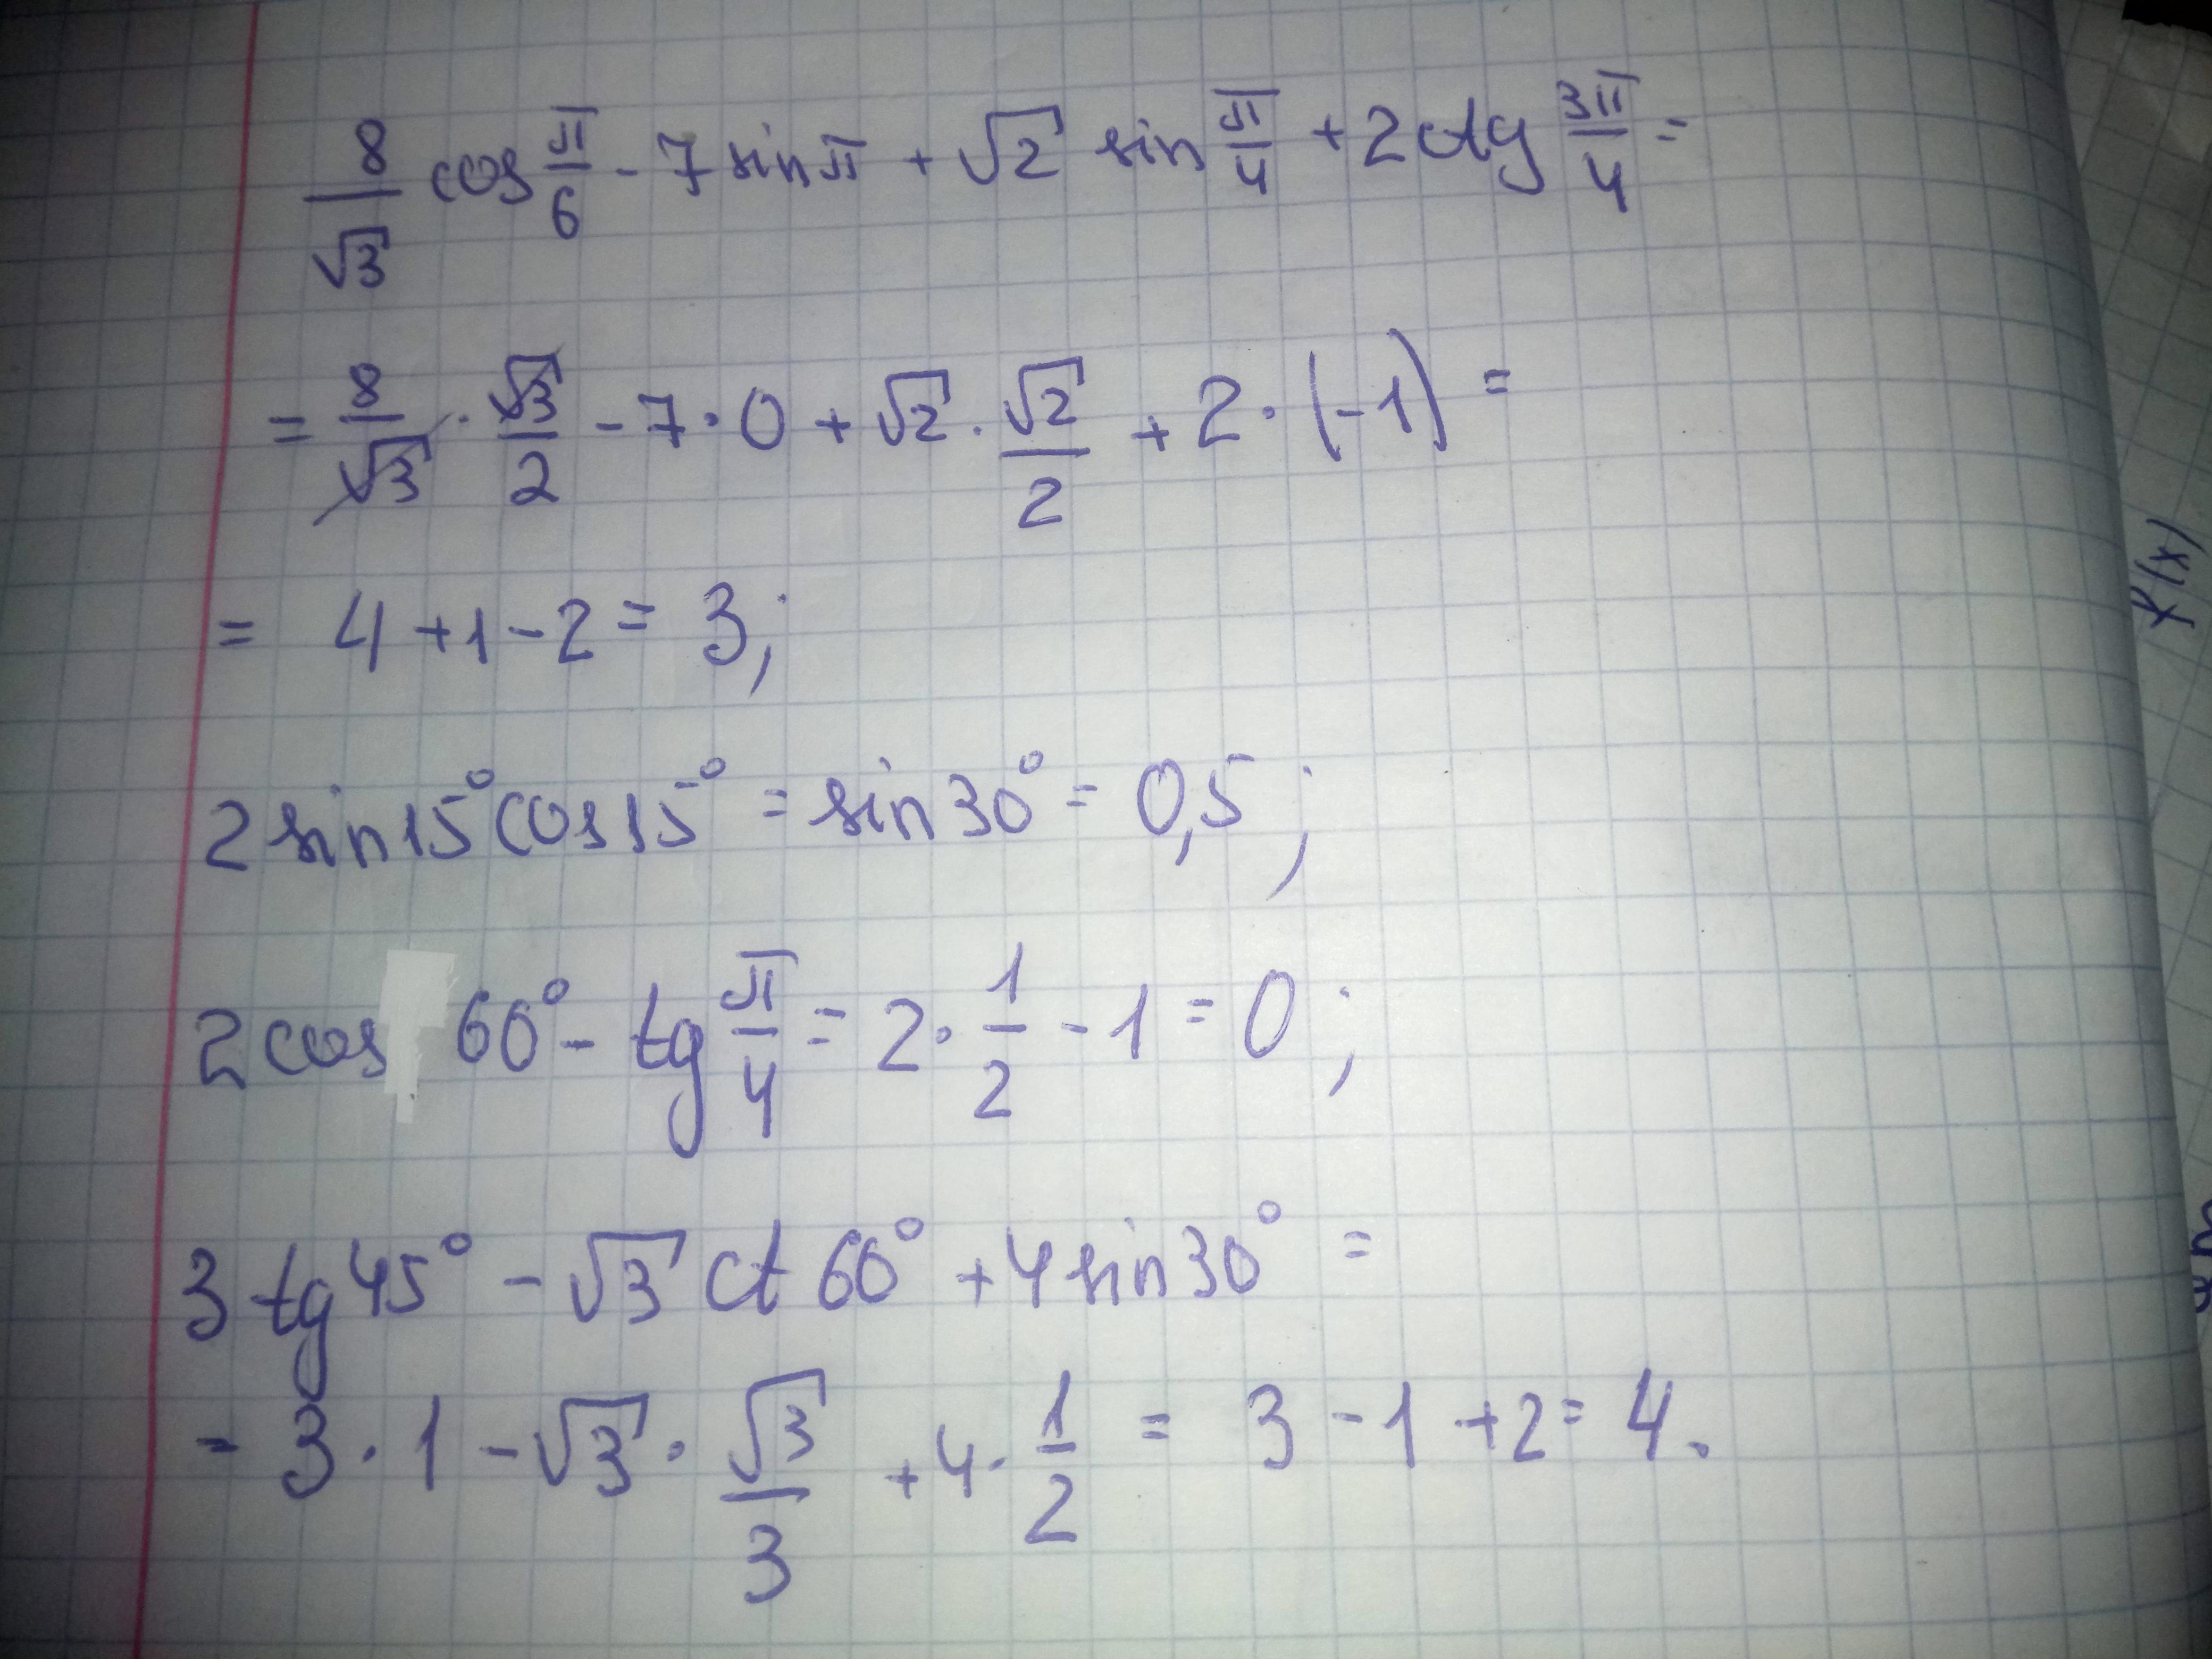 8/√3 cos π/6 - 7 sin π + √2 sin π/4 + 2 ctg 3π/4 =
= 8/√3 · √3/2 - 7 · 0 + √2 · √2/2 + 2 · (-1) =
= 4 + 1 - 2 = 3;
2 sin 15° cos 15° = sin 30° = 0,5;
2 cos 60° - tg π/4 = 2 · 1/2 - 1 = 0;
3 tg 45° - √3 ct 60° + 4 sin 30° =
= 3 · 1 - √3 · √3/3 + 4 · 1/2 = 3 - 1 + 2 = 4.